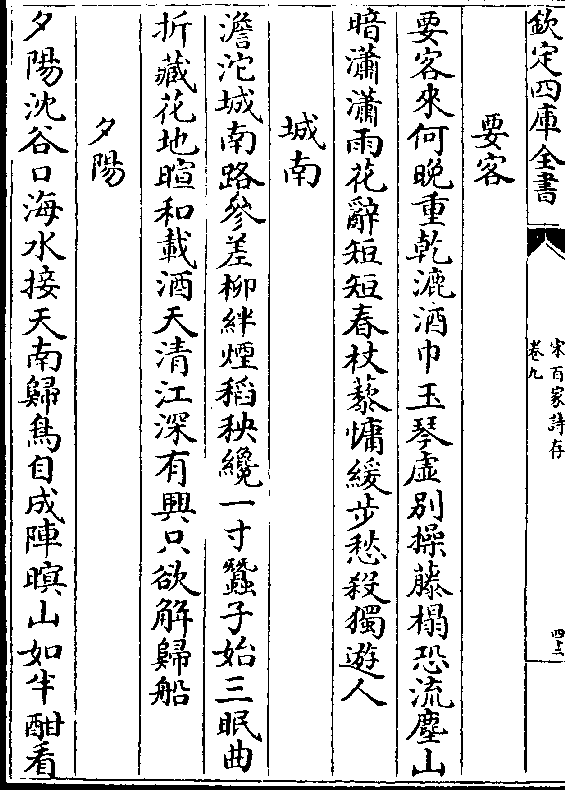 欽定四庫全書
宋百家詩存
卷九
四十三
要客
要客來何晚重乾漉酒巾玉琴虛別操藤榻恐流塵山
暗瀟瀟雨花辭短短春杖藜慵緩步愁殺獨遊人
城南
澹沱城南路參差柳絆煙稻秧纔一寸蠶子始三眠曲
折藏花地暄和載酒天清江深有興只欲解歸船
夕陽
夕陽沈谷口海水接天南歸鳥自成陣暝山如半酣看